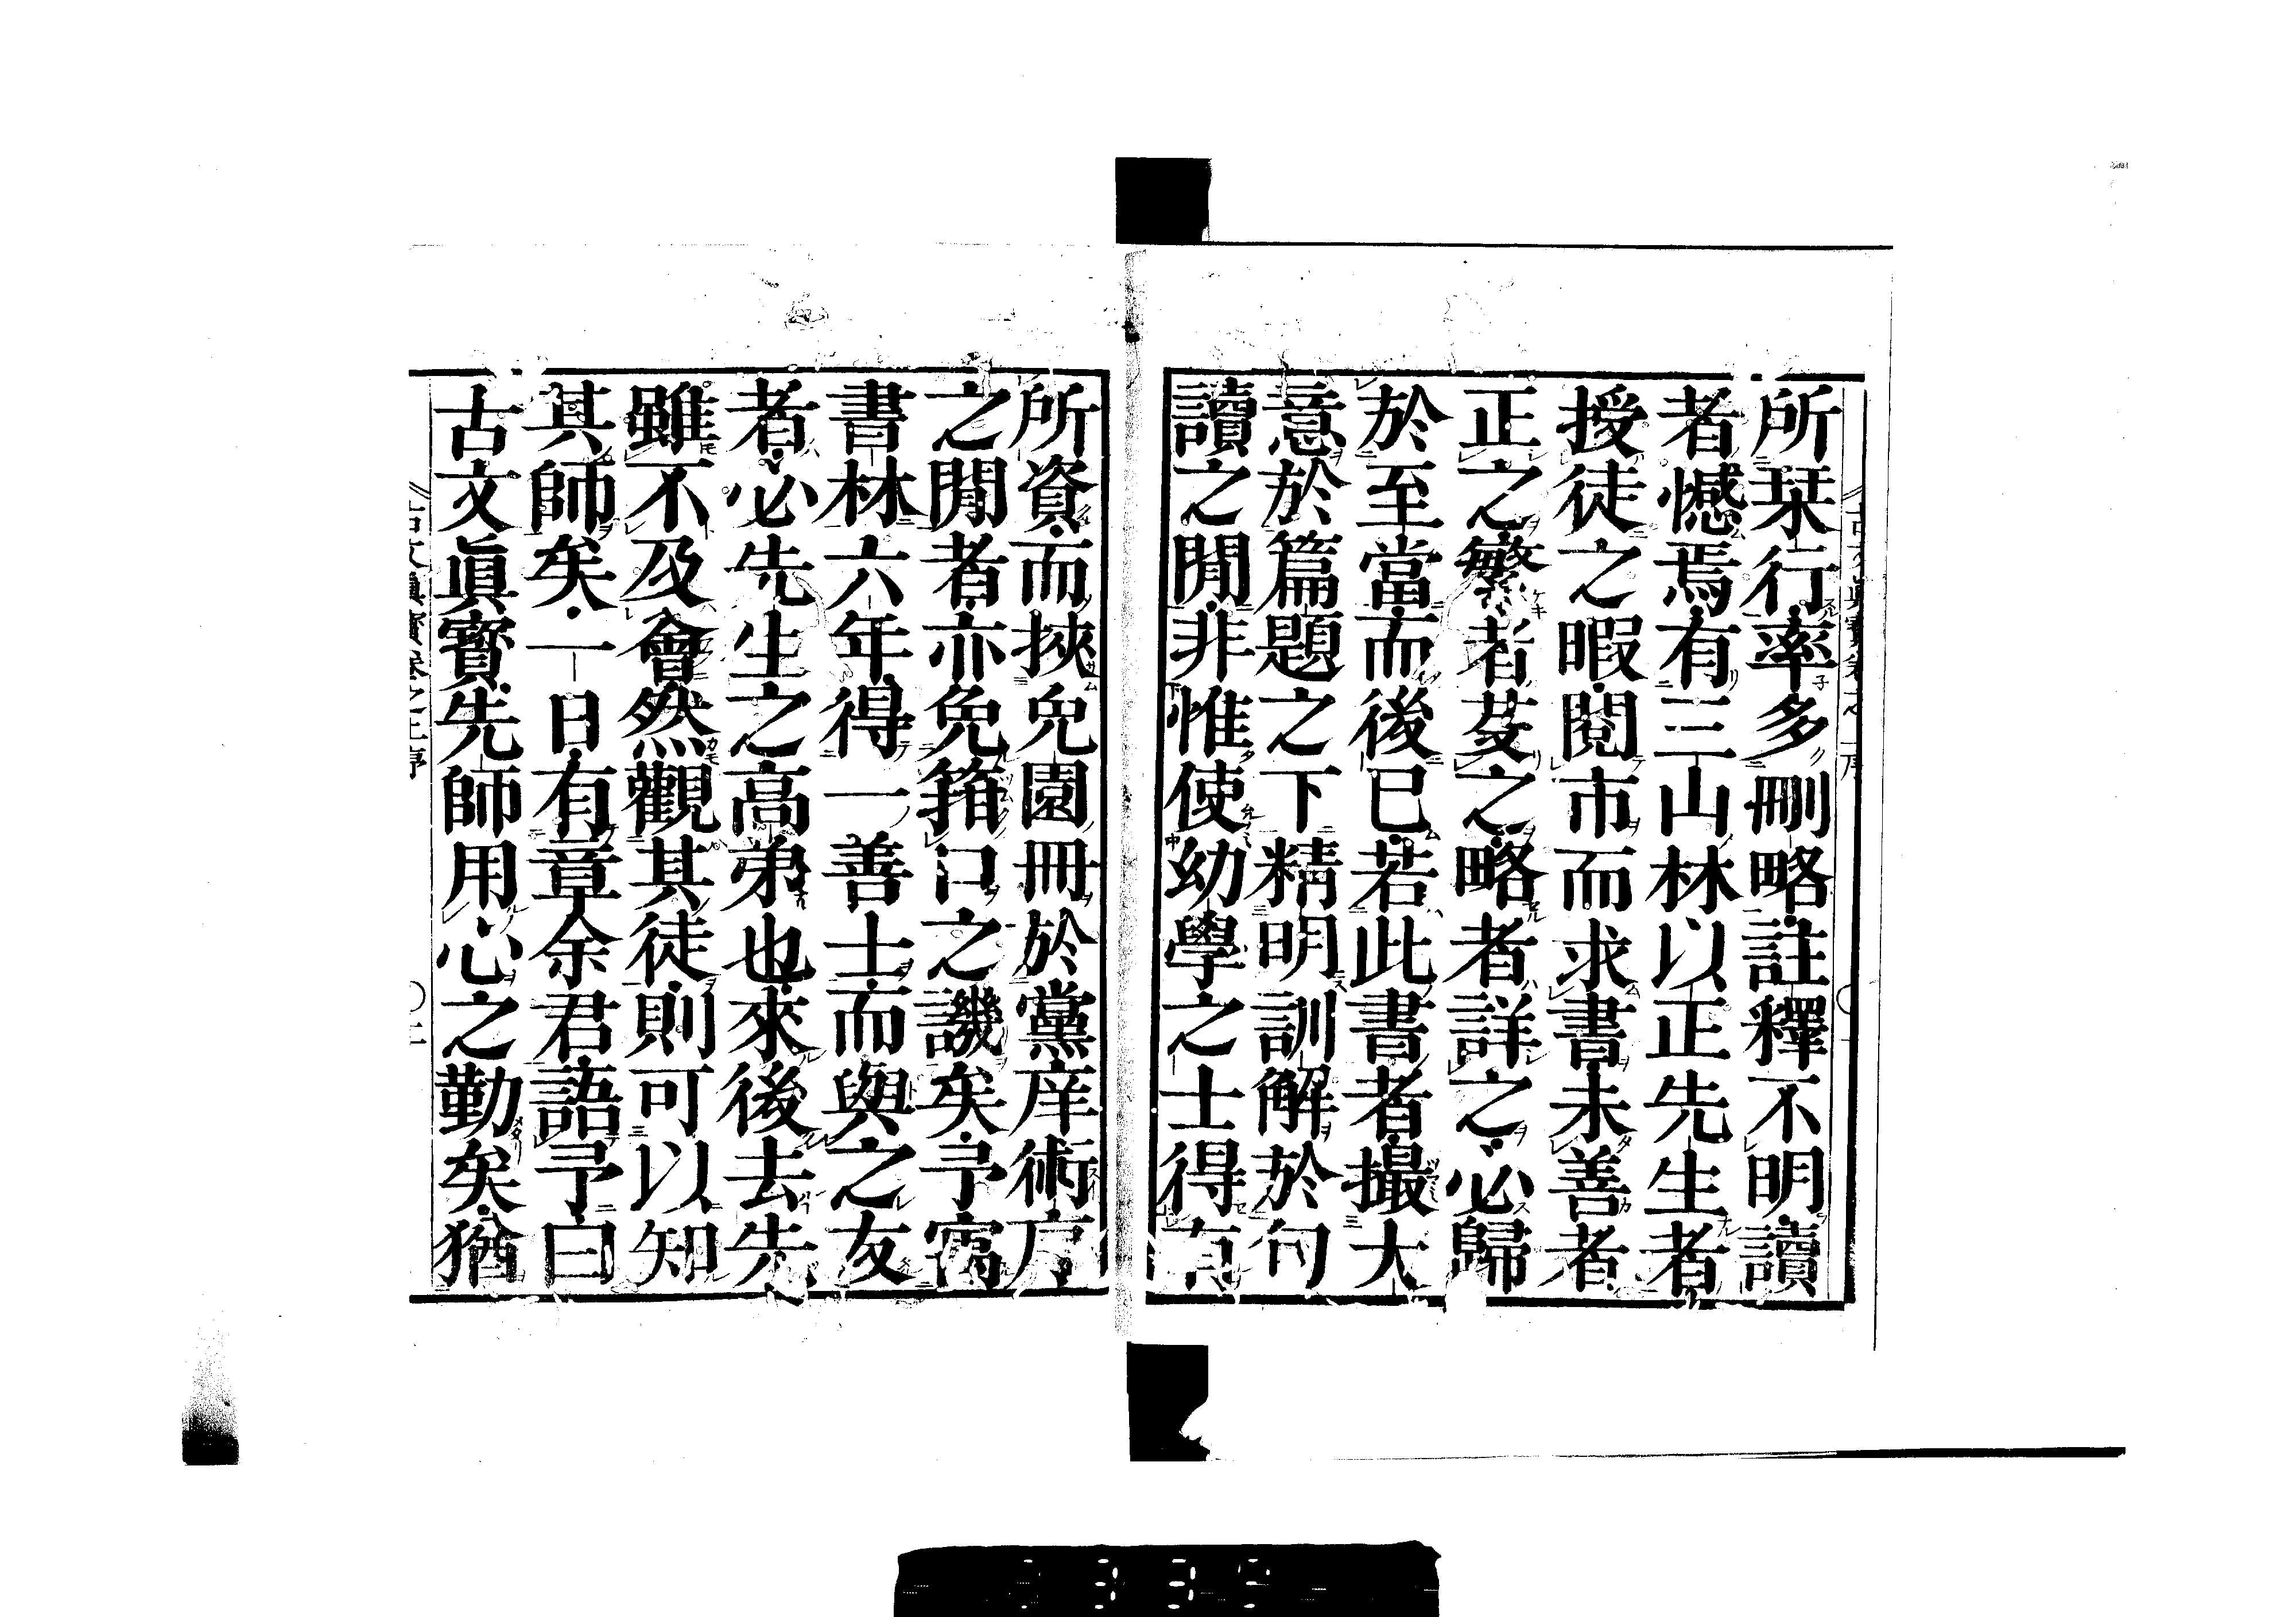 所栞行率多刪略註釋不明讀
者憾焉有三山林以正先生者
授徒之暇閱市而求書未善者
正之繁者芟之略者詳之必歸
於至當而後已若此書者撮大
意於篇題之下精明訓解於句
讀之閒非惟使幼學之士得有
所資而挾兔園冊於黨庠術序
之閒者亦免箝口之譏矣予寓
書林六年得一善士而與之友
者必先生之高弟也來後去先
雖不及會然觀其徒則可以知
其師矣一日有章余君語予曰
古文眞寳先師用心之勤矣猶
古文眞寳卷之上序